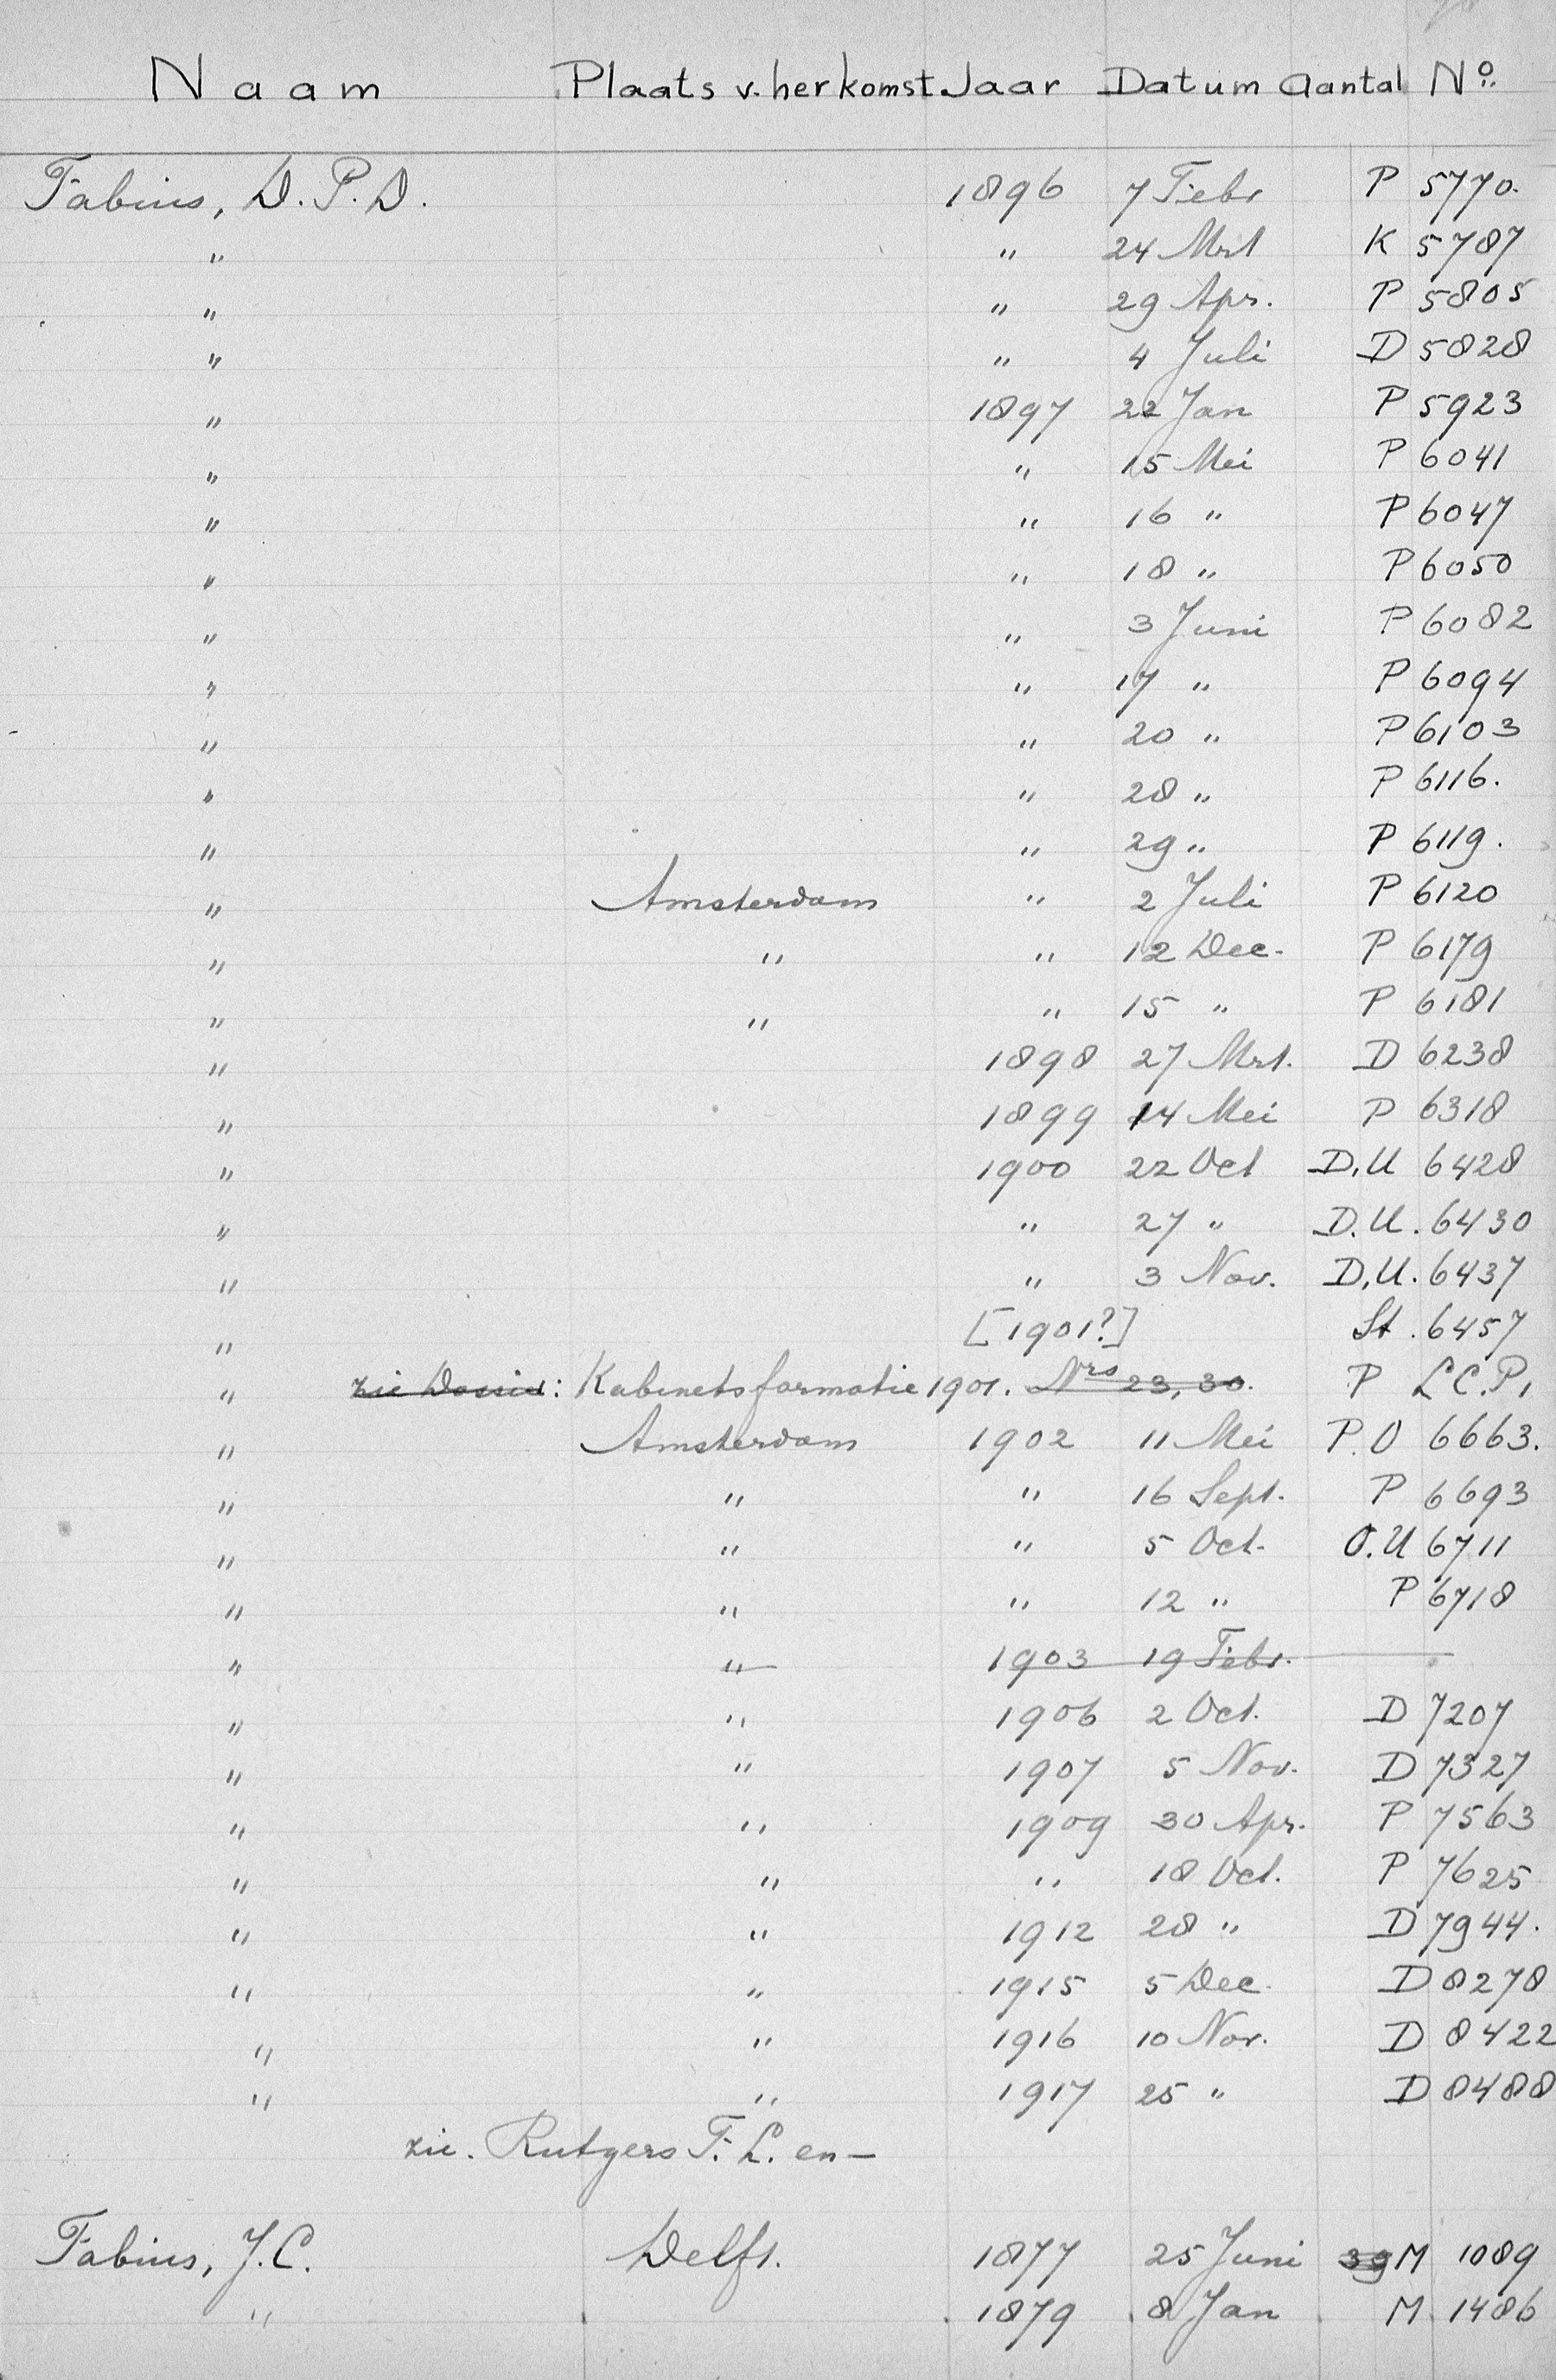 Naam Plaats v. herkomst Jaar Datum Aantal No.
Fabius, D.P.D. 1896 7 Febr P 5770.
" " 24 Mrt K 5787
" " 29 Apr. P 5805
" " 4 Juli D 5828
" 1897 22 Jan P 5923
" " 15 Mei P 6041
" " 16 " P 6047
" " 18 " P 6050
" " 3 Juni P 6082
" " 17 " P 6094
" " 20 " P 6103
" " 28 " P 6116.
" " 29 " P 6119.
" Amsterdam " 2 Juli P 6120
" " " 12 Dec. P 6179
" " " 15 " P 6181
" 1898 27 Mrt. D 6238
" 1899 14 Mei P 6318
" 1900 22 Oct D.U 6428
" " 27 " D.U. 6430
" " 3 Nov. D.U. 6437
" [1901?] St. 6457
" zie Dossier: Kabinetsformatie 1901. Nrs 23, 30. P L.C.P.
" Amsterdam 1902 11 Mei P.O 6663.
" " " 16 Sept. P 6693
" " " 5 Oct. O.U 6711
" " " 12 " P 6718
" " 1903 19 Febr.
" " 1906 2 Oct. D 7207
" " 1907 5 Nov. D 7327
" " 1909 30 Apr. P 7563
" " " 18 Oct. P 7625
" " 1912 28 " D 7944.
" " 1915 5 Dec. D 8278
" " 1916 10 Nov. D 8422
" " 1917 25 " D 8488
zie. Rutgers F.L. en —
Fabius, J.C. Delft. 1877 25 Juni 39 M 1089
" 1879 8 Jan M 1486